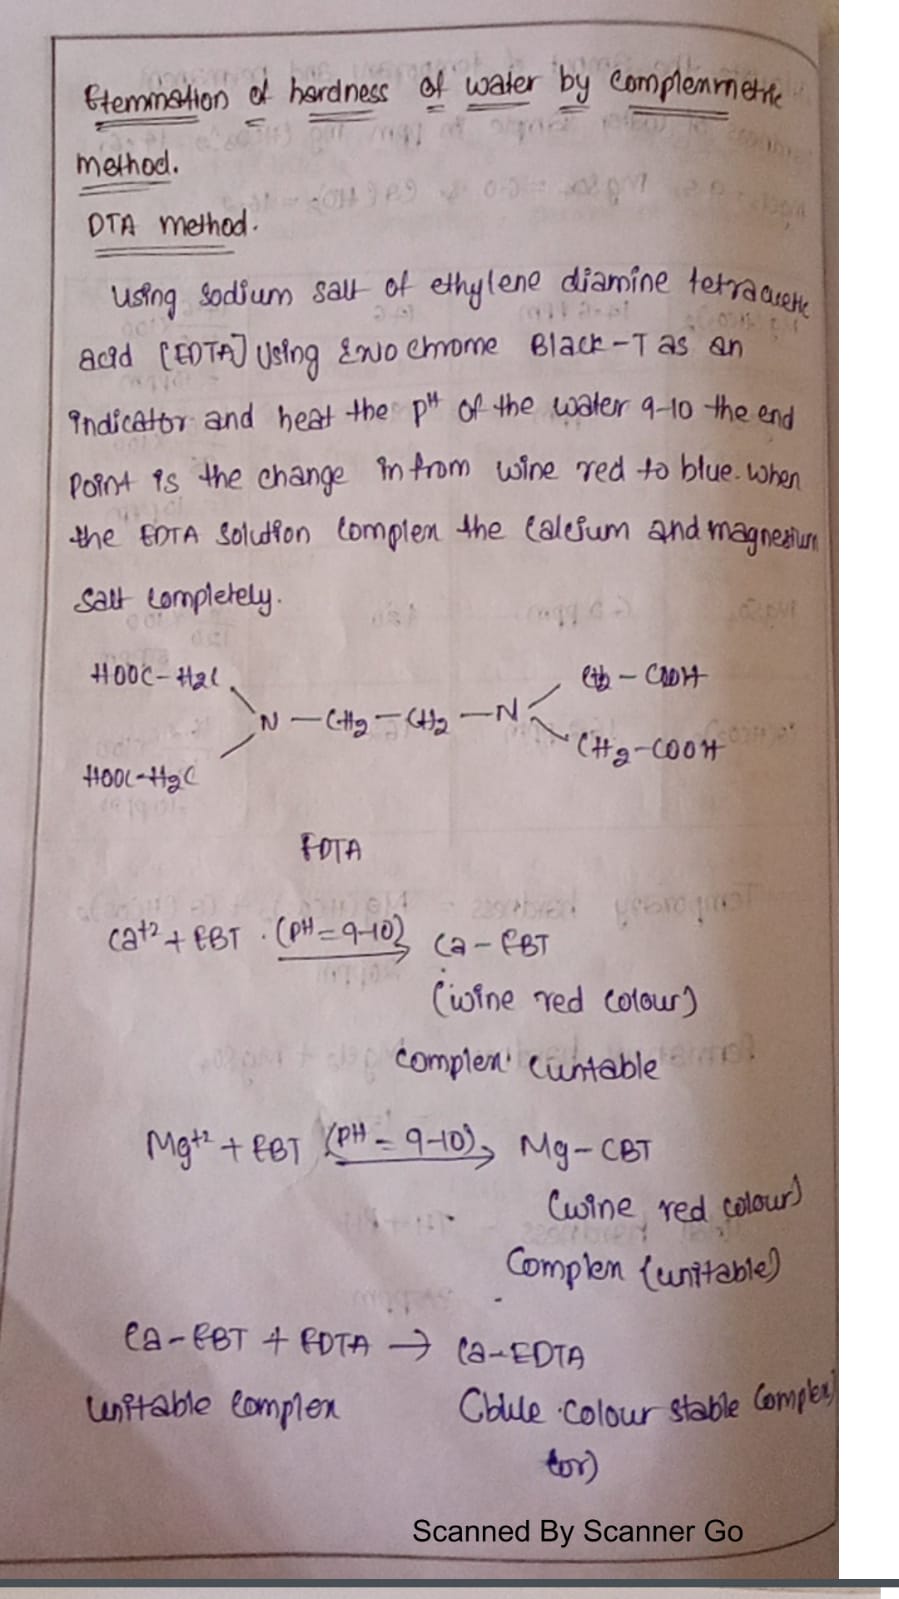 Etemmation of hardness of water by Complenmetric
method.
DTA method.
Using Sodium salt of ethylene diamine tetraacetic
acid [EDTA] Using Erio chrome Black-T as an
indicator and heat the pH of the water 9-10 the end
point is the change in from wine red to blue. when
the EDTA Solution Complex the Calcium and magnesium
Salt completely.
HOOC-H2C CH2-COOH
N-CH2-CH2-N
HOOC-H2C CH2-COOH
EDTA
Ca+2 + EBT (PH=9-10) → Ca-EBT
(wine red colour)
Complex (untable
Mg+2 + EBT (PH=9-10) → Mg-CBT
(wine red colour)
Complex (unitable)
Ca-EBT + EDTA → Ca-EDTA
Unitable Complex Cblue colour stable Complex)
(or)
Scanned By Scanner Go